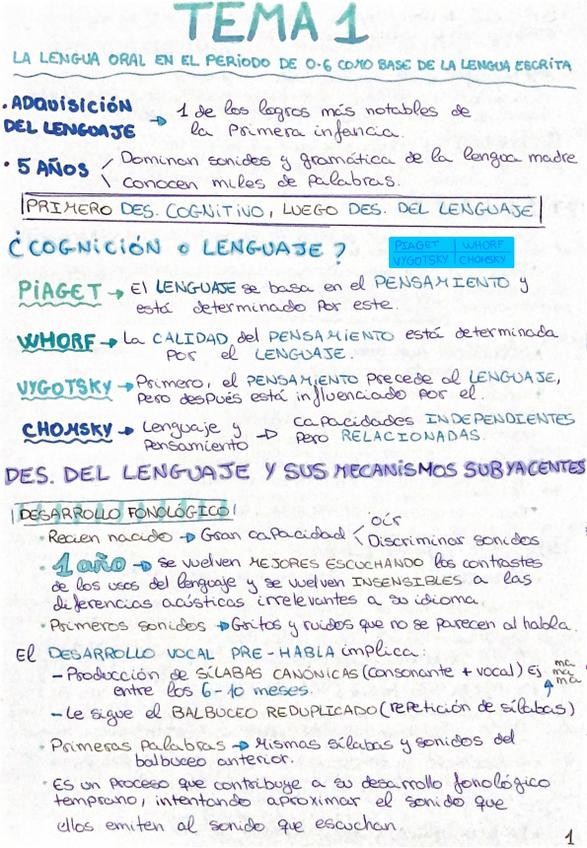 TEMA 1
LA LENGUA ORAL EN EL PERIODO DE 0-6 COMO BASE DE LA LENGUA ESCRITA
· ADQUISICIÓN DEL LENGUAJE → 1 de los logros más notables de
la primera infancia.
· 5 AÑOS / Dominan sonidos y gramática de la lengua madre
\ Conocen miles de palabras.
PRIMERO DES. COGNITIVO, LUEGO DES. DEL LENGUAJE
¿COGNICIÓN O LENGUAJE?
PIAGET | WHORF
VYGOTSKY | CHOMSKY
PIAGET → El LENGUAJE se basa en el PENSAMIENTO y
está determinado por este.
WHORF → La CALIDAD del PENSAMIENTO está determinada
por el LENGUAJE.
VYGOTSKY → Primero, el PENSAMIENTO precede al LENGUAJE,
pero después está influenciado por el.
CHOMSKY → Lenguaje y pensamiento → capacidades INDEPENDIENTES
pero RELACIONADAS.
DES. DEL LENGUAJE Y SUS MECANISMOS SUBYACENTES
DESARROLLO FONOLÓGICO
· Recien nacido → Gran capacidad / oír
\ Discriminar sonidos
· 1 año → se vuelven MEJORES ESCUCHANDO los contrastes
de los usos del lenguaje y se vuelven INSENSIBLES a las
diferencias acústicas irrelevantes a su idioma.
· Primeros sonidos → Gritos y ruidos que no se parecen al habla.
El DESARROLLO VOCAL PRE-HABLA implica:
- Producción de SÍLABAS CANÓNICAS (consonante + vocal) Ej ma
ma
ma
entre los 6-10 meses.
- Le sigue el BALBUCEO REDUPLICADO (repetición de sílabas)
· Primeras palabras → Mismas sílabas y sonidos del
balbuceo anterior.
· Es un proceso que contribuye a su desarrollo fonológico
temprano, intentando aproximar el sonido que
ellos emiten al sonido que escuchan.
1